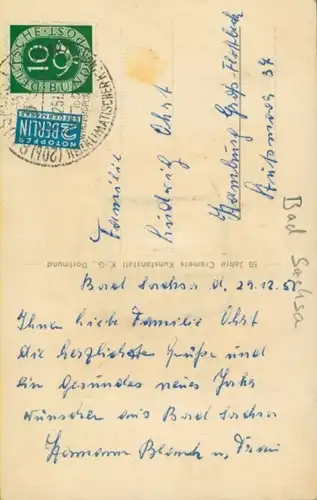 DEUTSCHE BUNDESPOST
10
2 BERLIN
NOTOPFER
STEUERMARKE
(20b)
HEILKLIMATISCHER K
Familie
Ludwig Ohst
Hamburg Groß-Flottbek
34
50 Jahre Cramers Kunstanstalt K.-G., Dortmund
Bad Sachsa
Bad Sachsa d. 29.12.5
Ihnen liebe Familie Ohst
die herzlichsten Grüße und
ein gesundes neues Jahr
wünschen aus Bad Sachsa
Hermann u. Frau